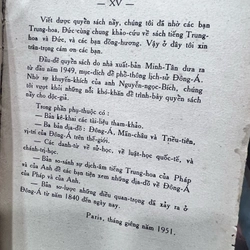 — XV —
Viết được quyển sách này, chúng tôi đã nhờ các bạn
Trung-hoa, Đức cùng chung khảo-cứu về sách tiếng Trung-
hoa và Đức, và các bạn đồng-hương. Vậy ở đây tôi xin
trân-trọng cảm ơn các bạn.
Đầu-đề quyển sách do nhà xuất-bản Minh-Tân đưa ra
từ đầu năm 1949, mục-đích để phổ-thông lịch-sử Đông-Á.
Nhờ sự khuyến-khích của anh Nguyễn-ngọc-Bích, chúng
tôi vượt khỏi những nỗi khó-khăn để trình-bày quyển sách
này cho độc-giả.
Trong phần phụ-thuộc có :
— Bản kê-khai các tài-liệu tham-khảo.
— Ba bản địa-đồ : Đông-Á, Mãn-châu và Triều-tiên,
vị-trí của Đông-Á trên thế-giới.
— Các danh-từ về sử-học, về luật-học quốc-tế, và
chánh-trị.
— Bản so-sánh sự dịch-âm tiếng Trung-hoa của Pháp
và của Anh để các bạn tiện xem những địa-đồ về Đông-Á
của Pháp và của Anh.
— Bản sơ-lược những điều quan-trọng đã xảy ra ở
Đông-Á từ năm 1840 đến ngày nay.
Paris, tháng giêng năm 1951.